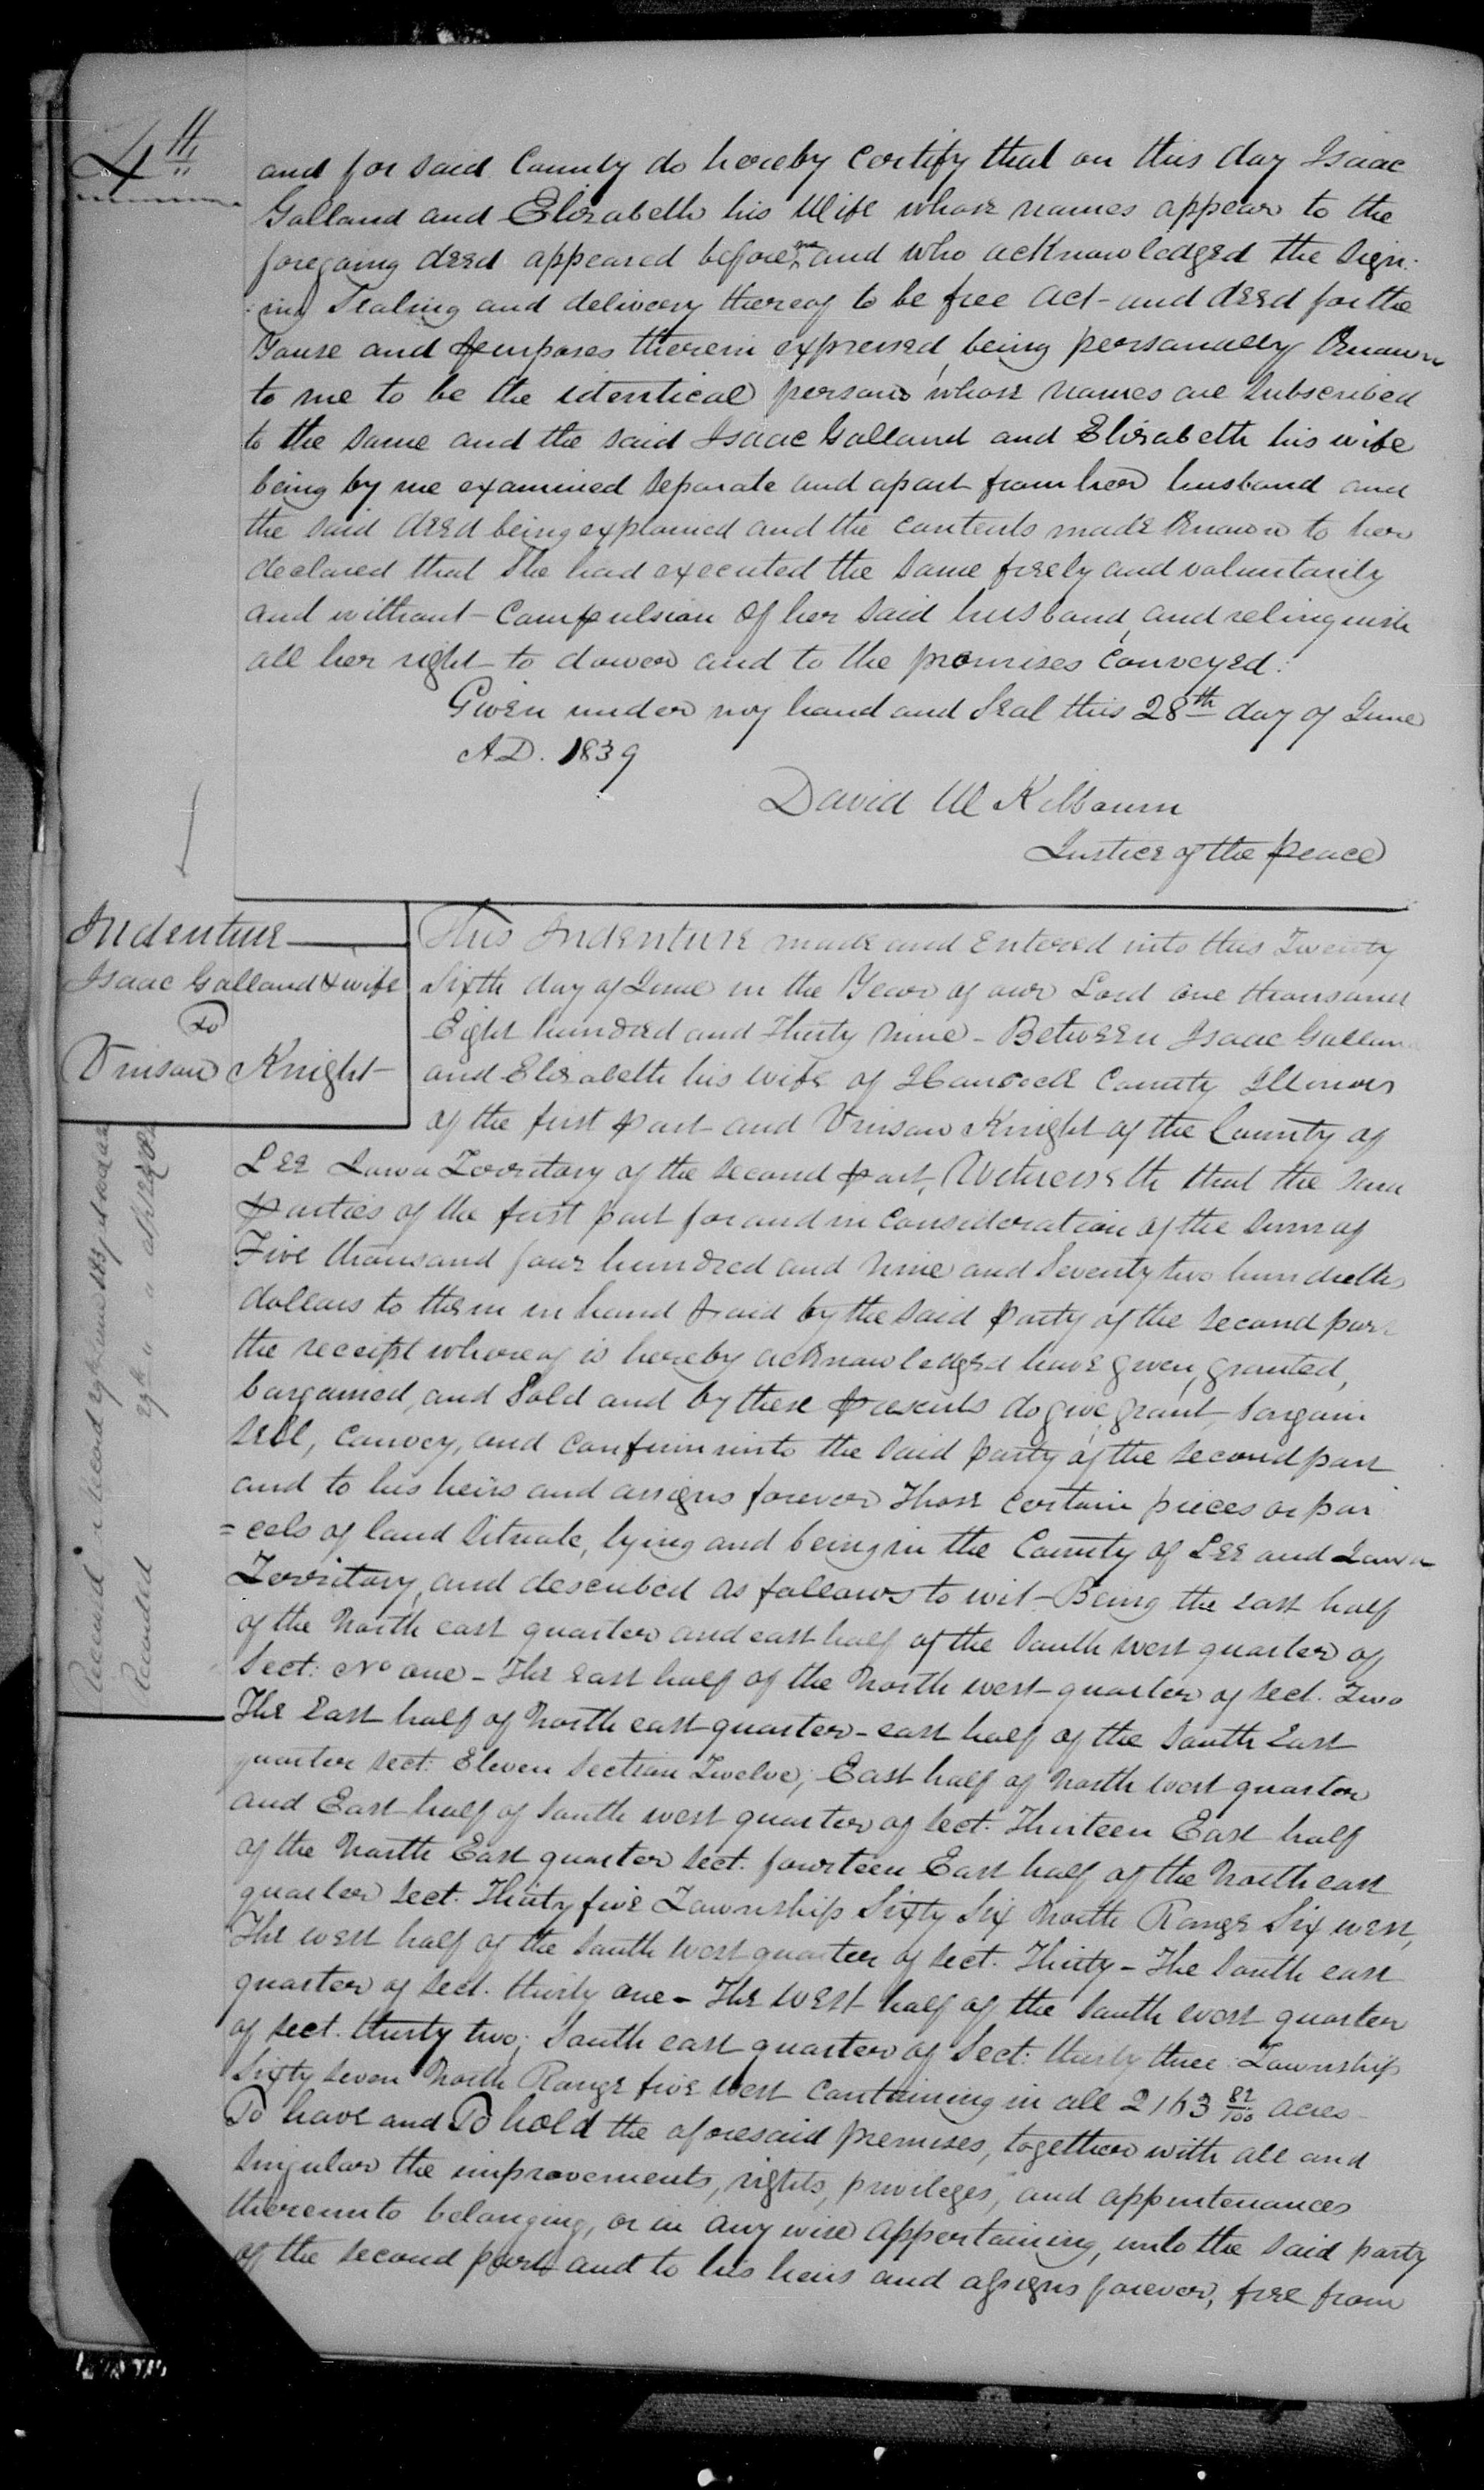 4th
and for said County do hereby certify that on this day Isaac
Galland and Elizabeth his Wife whose names appear to the
foregoing deed appeared before me and who acknowledged the sign:
:ing Sealing and delivery thereof to be free act and deed for the
and purposes therein expressed, being personally Known
to me to be the identical persons whose names are subscribed
to the same and the said Isaac Galland and Elizabeth his wife
being by me examined separate and apart from her husband and
the said deed being explained and the contents made Known to her
declared that She had executed the same freely and voluntarily
and without Compulsion of her said husband, and relinquish
all her right to dower and to the premises conveyed.
Given under my hand and Seal this 28th day of June
A.D. 1839
David W Kilbourn
Justice of the peace
Indenture
Isaac Galland & wife
To
Vinson Knight
This Indenture made and Entered into this Twenty
Sixth day of June in the Year of our Lord one thousand
Eight hundred and Thirty Nine - Between Isaac Galland
and Elizabeth his wife of Hancock County Illinois
of the first part and Vinson Knight of the County of
Lee Iowa Territory of the second part, Witnesseth that the said
parties of the first part for and in consideration of the sum of
Five thousand four hundred and nine and Seventy two hundredths
dollars to them in hand paid by the said party of the second part
the receipt whereof is hereby acknowledged have given, granted,
bargained, and Sold and by these presents do give, grant, bargain
sell, convey, and confirm unto the said party of the second part
and to his heirs and assigns forever Those certain pieces or par
=cels of land situate, lying and being in the County of Lee and Iowa
Territory, and described as follows to wit - Being the east half
of the North east quarter and east half of the South west quarter of
Sect: No one - The east half of the North west quarter of sect. Two
The East half of North east quarter - east half of the South East
quarter sect: Eleven Section Twelve; East half of North west quarter
and East half of South west quarter of sect. Thirteen East half
of the North East quarter sect. fourteen East half of the North east
quarter sect. Thirty five Township Sixty Six North Range Six west,
The west half of the South west quarter of sect. Thirty - The South east
quarter of sect. thirty one - The west half of the South west quarter
of sect. thirty two; South east quarter of Sect: thirty three: Township
Sixty seven North Range five west containing in all 2163 82/100 acres -
To have and To hold the aforesaid premises, together with all and
singular the improvements, rights, privileges, and appurtenances
thereunto belonging, or in any wise appertaining, unto the said party
of the second part and to his heirs and assigns forever, free from
Recorded